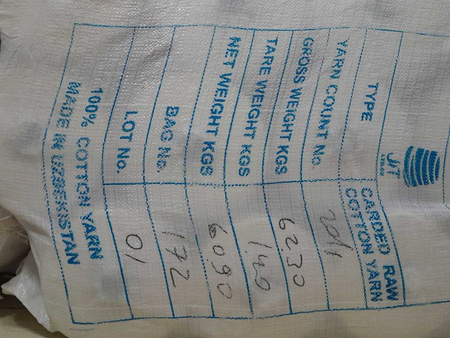 JT
TYPE CARDED RAW
COTTON YARN
YARN COUNT No. 20/1
GROSS WEIGHT KGS 6230
TARE WEIGHT KGS 1.40
NET WEIGHT KGS 6090
BAG No. 172
LOT No. 01
100% COTTON YARN
MADE IN UZBEKISTAN